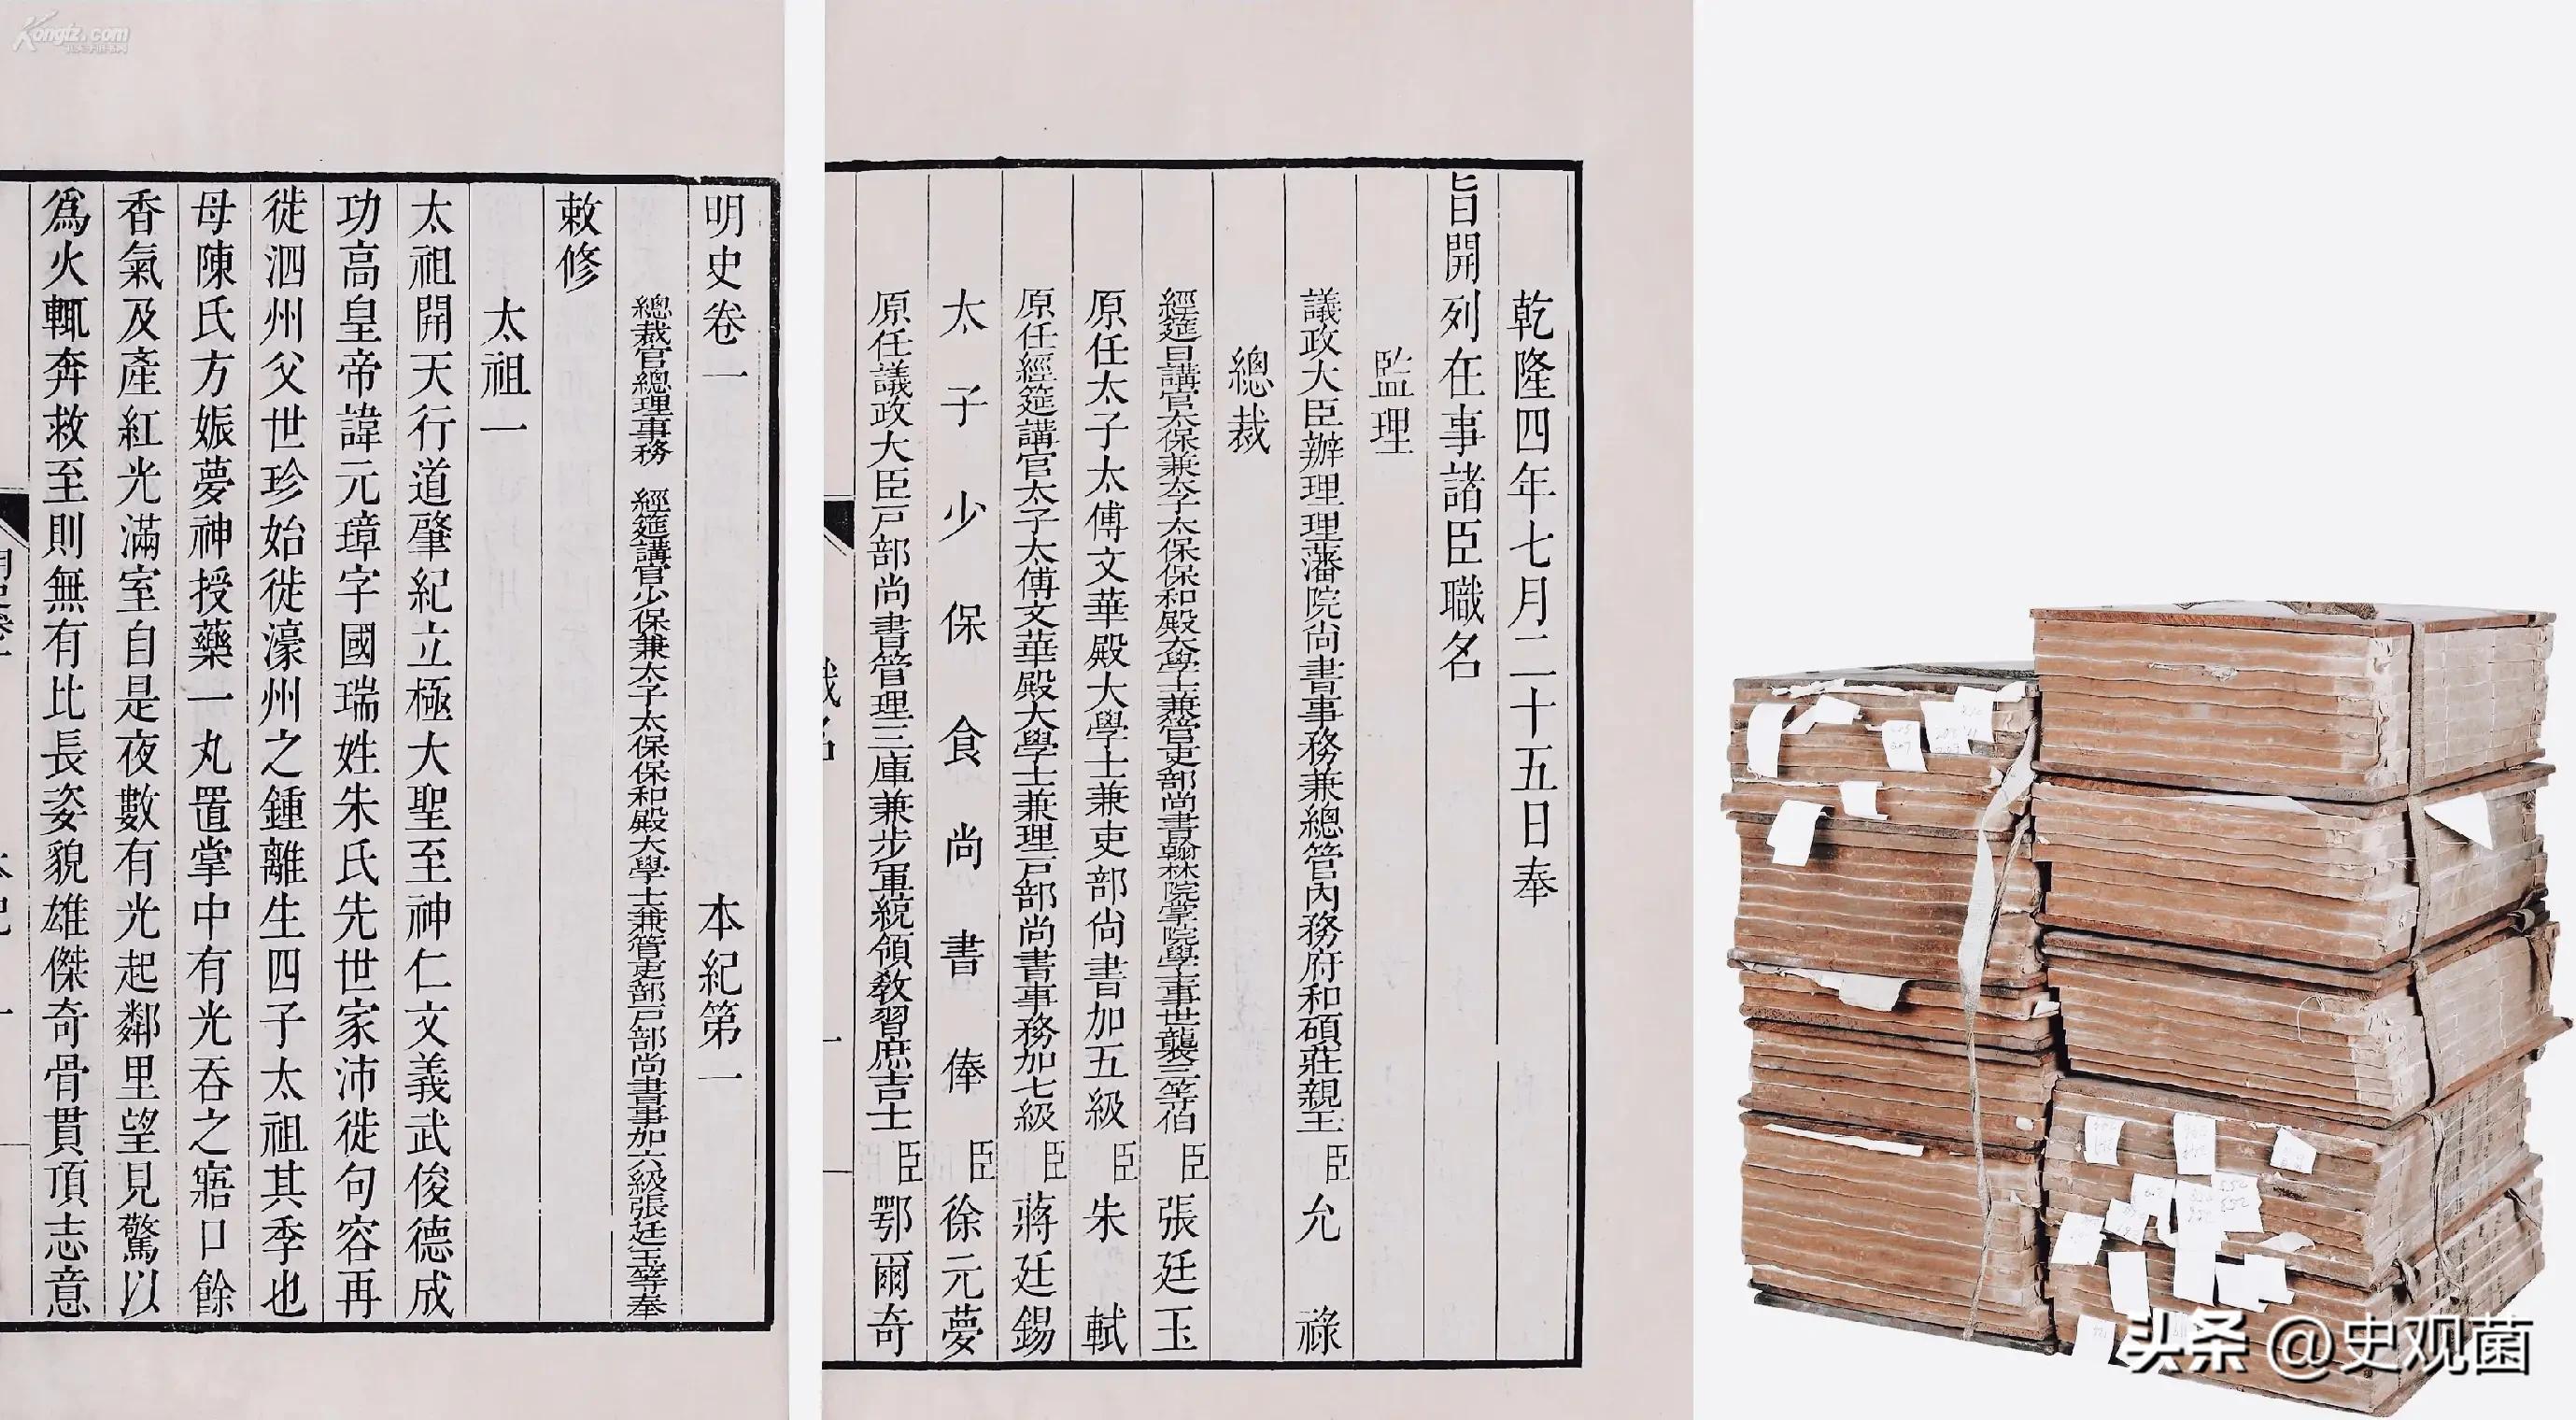 Kongfz.com
明史卷一 本紀第一
總裁官總理事務 經筵講官少保兼太子太保保和殿大學士兼管吏部戶部尚書事加六級張廷玉等奉
敕修
太祖一
太祖開天行道肇紀立極大聖至神仁文義武俊德成
功高皇帝諱元璋字國瑞姓朱氏先世家沛徙句容再
徙泗州父世珍始徙濠州之鍾離生四子太祖其季也
母陳氏方娠夢神授藥一丸置掌中有光吞之寤口餘
香氣及產紅光滿室自是夜數有光起鄰里望見驚以
爲火輒奔救至則無有比長姿貌雄傑奇骨貫頂志意
乾隆四年七月二十五日奉
旨開列在事諸臣職名
監理
議政大臣辦理理藩院尚書事務兼總管內務府和碩莊親王臣允祿
總裁
經筵日講官太保兼太子太保保和殿大學士兼管吏部尚書翰林院掌院學士事世襲三等伯臣張廷玉
原任太子太傅文華殿大學士兼吏部尚書加五級臣朱軾
原任經筵講官太子太傅文華殿大學士兼理戶部尚書事務加七級臣蔣廷錫
太子少保食尚書俸臣徐元夢
原任議政大臣戶部尚書管理三庫兼步軍統領教習庶吉士臣鄂爾奇
头条 @史观菌